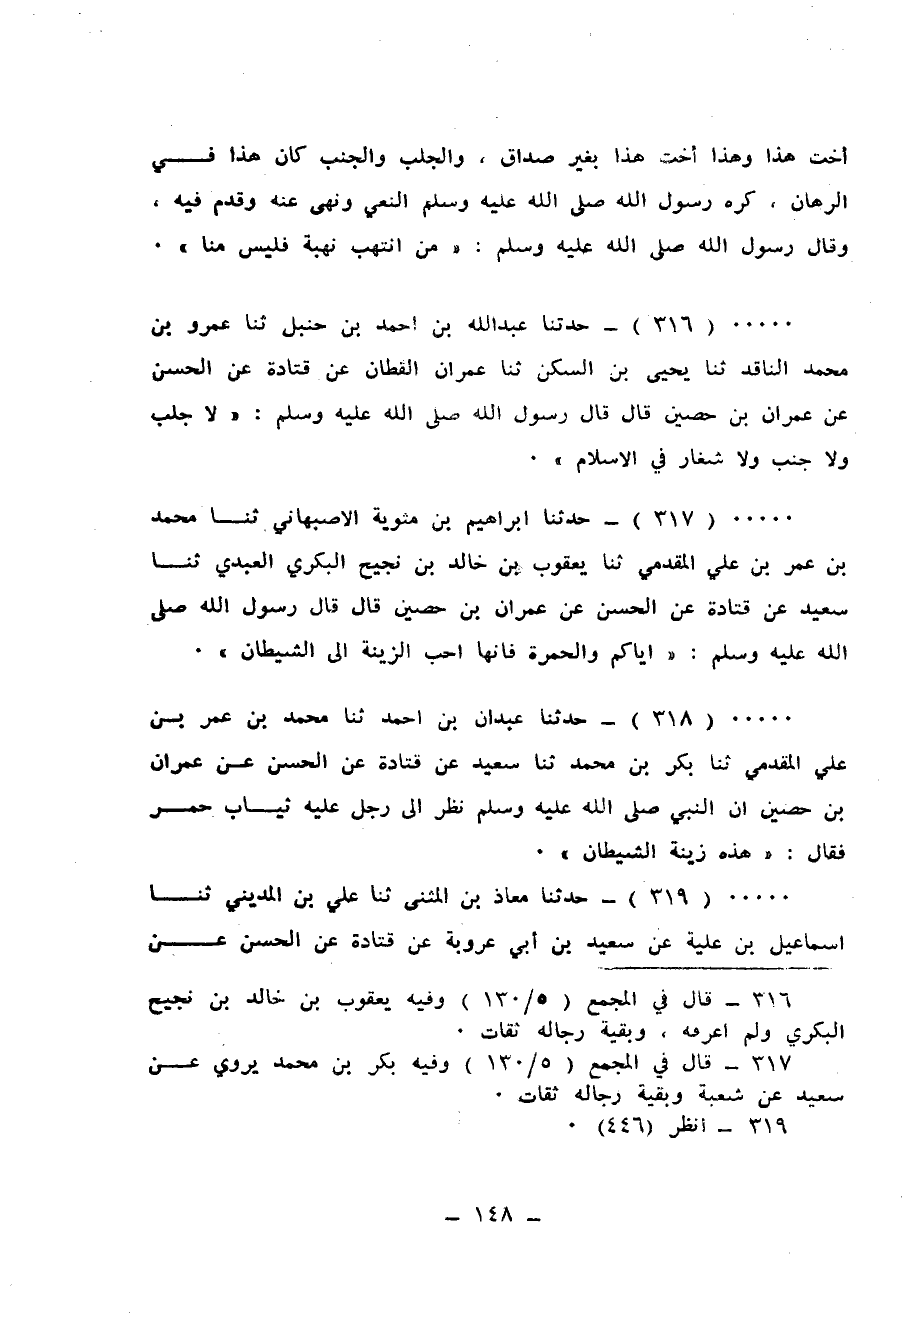 أخت هذا وهذا أخت هذا بغير صداق ، والجلب والجنب كان هذا فـــي
الرهان ، كره رسول الله صلى الله عليه وسلم النعي ونهى عنه وقدم فيه ،
وقال رسول الله صلى الله عليه وسلم : « من انتهب نهبة فليس منا » ٠
٠٠٠٠٠ ( ٣١٦ ) ــ حدتنا عبدالله بن احمد بن حنبل ثنا عمرو بن
محمد الناقد ثنا يحيى بن السكن ثنا عمران القطان عن قتادة عن الحسن
عن عمران بن حصين قال قال رسول الله صلى الله عليه وسلم : « لا جلب
ولا جنب ولا شغار في الاسلام » ٠
٠٠٠٠٠ ( ٣١٧ ) ــ حدثنا ابراهيم بن متوية الاصبهاني ثنـــا محمد
بن عمر بن علي المقدمي ثنا يعقوب بن خالد بن نجيح البكري العبدي ثنـــا
سعيد عن قتادة عن الحسن عن عمران بن حصين قال قال رسول الله صلى
الله عليه وسلم : « اياكم والحمرة فانها احب الزينة الى الشيطان » ٠
٠٠٠٠٠ ( ٣١٨ ) ــ حدثنا عبدان بن احمد ثنا محمد بن عمر بــن
علي المقدمي ثنا بكر بن محمد ثنا سعيد عن قتادة عن الحسن عــن عمران
بن حصين ان النبي صلى الله عليه وسلم نظر الى رجل عليه ثيـــاب حمـــر
فقال : « هذه زينة الشيطان » ٠
٠٠٠٠٠ ( ٣١٩ ) ــ حدثنا معاذ بن المثنى ثنا علي بن المديني ثنـــا
اسماعيل بن علية عن سعيد بن أبي عروبة عن قتادة عن الحسن عـــــن
٣١٦ ــ قال في المجمع ( ١٣٠/٥ ) وفيه يعقوب بن خالد بن نجيح
البكري ولم اعرفه ، وبقية رجاله ثقات ٠
٣١٧ ــ قال في المجمع ( ١٣٠/٥ ) وفيه بكر بن محمد يروي عـــن
سعيد عن شعبة وبقية رجاله ثقات ٠
٣١٩ ــ انظر (٤٤٦) ٠
ــ ١٤٨ ــ